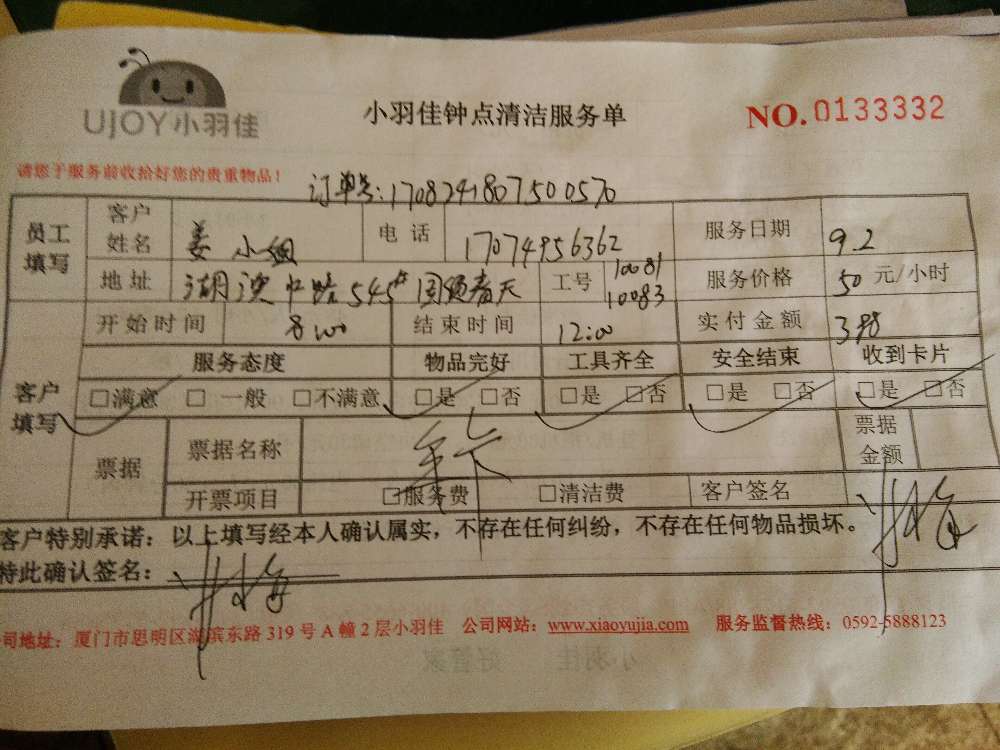 UJOY小羽佳
小羽佳钟点清洁服务单
NO.0133332
请您于服务前收拾好您的贵重物品！
订单号:1708241807500570
员工填写 客户姓名 姜小姐 电话 17074956362 服务日期 9.2
地址 湖滨中路545# 国领春天 工号 10081 10083 服务价格 50元/小时
开始时间 8:00 结束时间 12:00 实付金额 398
客户填写 服务态度 物品完好 工具齐全 安全结束 收到卡片
□满意 □一般 □不满意 □是 □否 □是 □否 □是 □否 □是 □否
票据 票据名称 票据金额
开票项目 □服务费 □清洁费 客户签名
客户特别承诺：以上填写经本人确认属实，不存在任何纠纷，不存在任何物品损坏。
特此确认签名：
司地址：厦门市思明区湖滨东路319号A幢2层小羽佳 公司网站：www.xiaoyujia.com 服务监督热线：0592-5888123